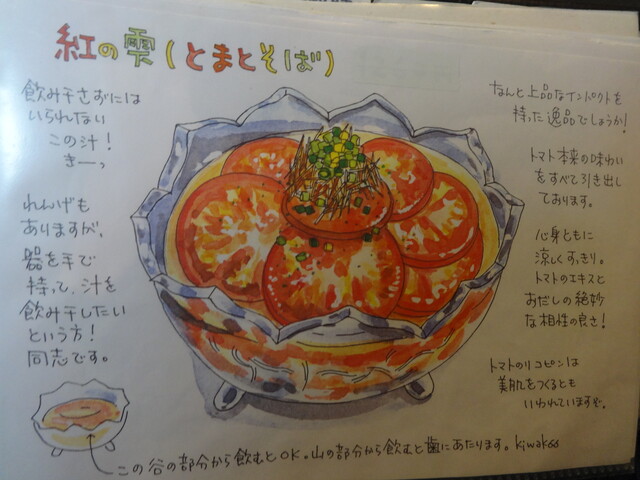 紅の雫(とまとそば)
飲み干さずには
いられない
この汁!
きーっ
れんげも
ありますが、
器を手で
持って、汁を
飲み干したい
という方!
同志です。
なんと上品なインパクトを
持った逸品でしょうか!
トマト本来の味わい
をすべて引き出し
ております。
心身ともに
涼しくすっきり。
トマトのエキスと
おだしの絶妙
な相性の良さ!
トマトのリコピンは
美肌をつくるとも
いわれていますぞ。
この谷の部分から飲むとOK。山の部分から飲むと歯にあたります。